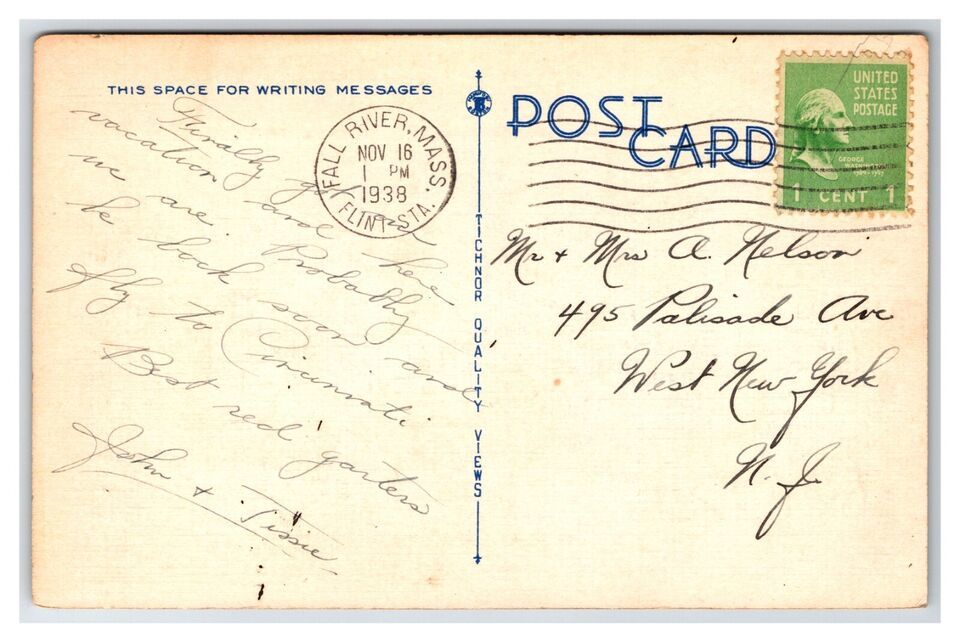 THIS SPACE FOR WRITING MESSAGES
Finally got a
vacation and here
we are Probably
be back soon and
fly to Cincinnati
Best red garters
John + Tissie
FALL RIVER, MASS.
NOV 16
1 PM
1938
FLINT STA.
TICHNOR QUALITY VIEWS
POST CARD
UNITED
STATES
POSTAGE
GEORGE
WASHINGTON
1 CENT 1
Mr + Mrs A. Nelson
495 Palisade Ave
West New York
N. J.